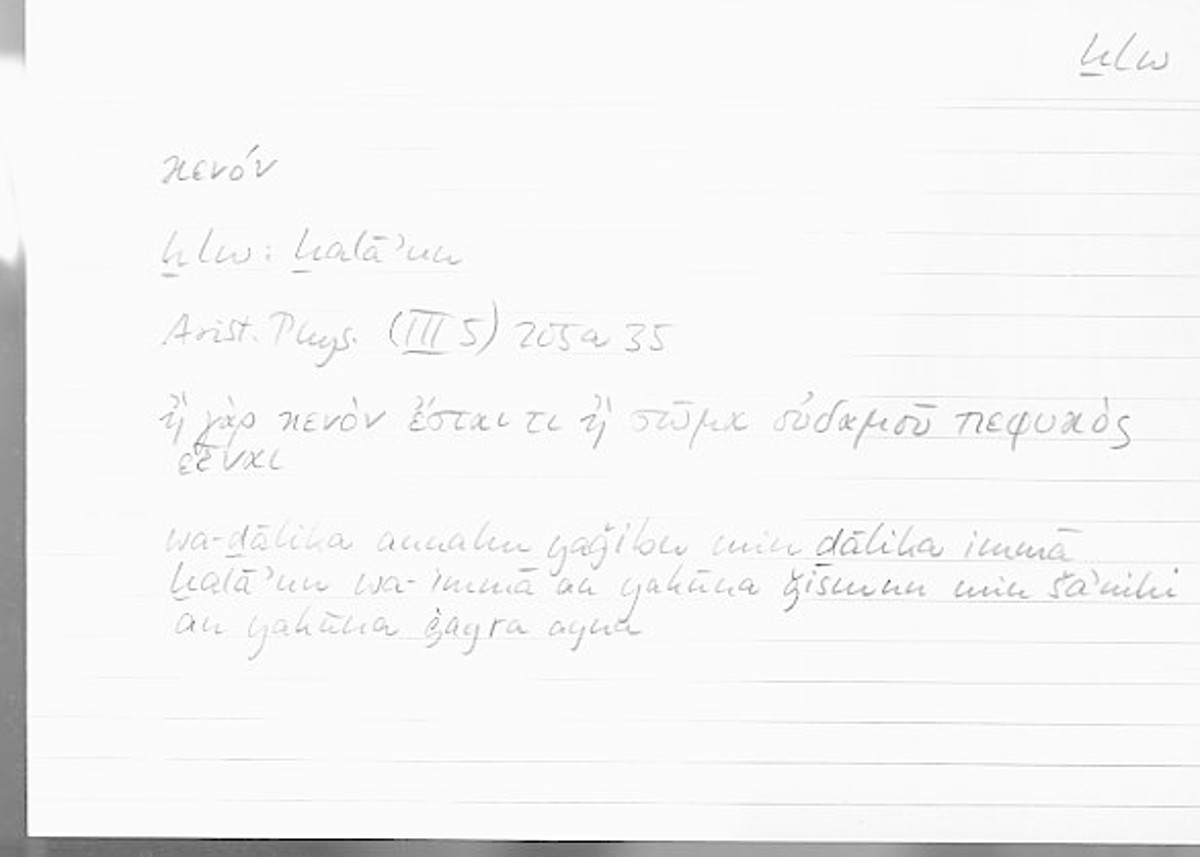 ḫlw
κενόν
ḫlw: ḫalā’un
Arist. Phys. (III 5) 205a 35
ἢ γὰρ κενὸν ἔσται τι ἢ σῶμα οὐδαμοῦ πεφυκὸς
εἶναι
wa-ḏālika annahu yaǧibu min ḏālika immā
ḫalā’un wa-immā an yakūna ǧismun min ša’nihi
an yakūna ġayra ayna